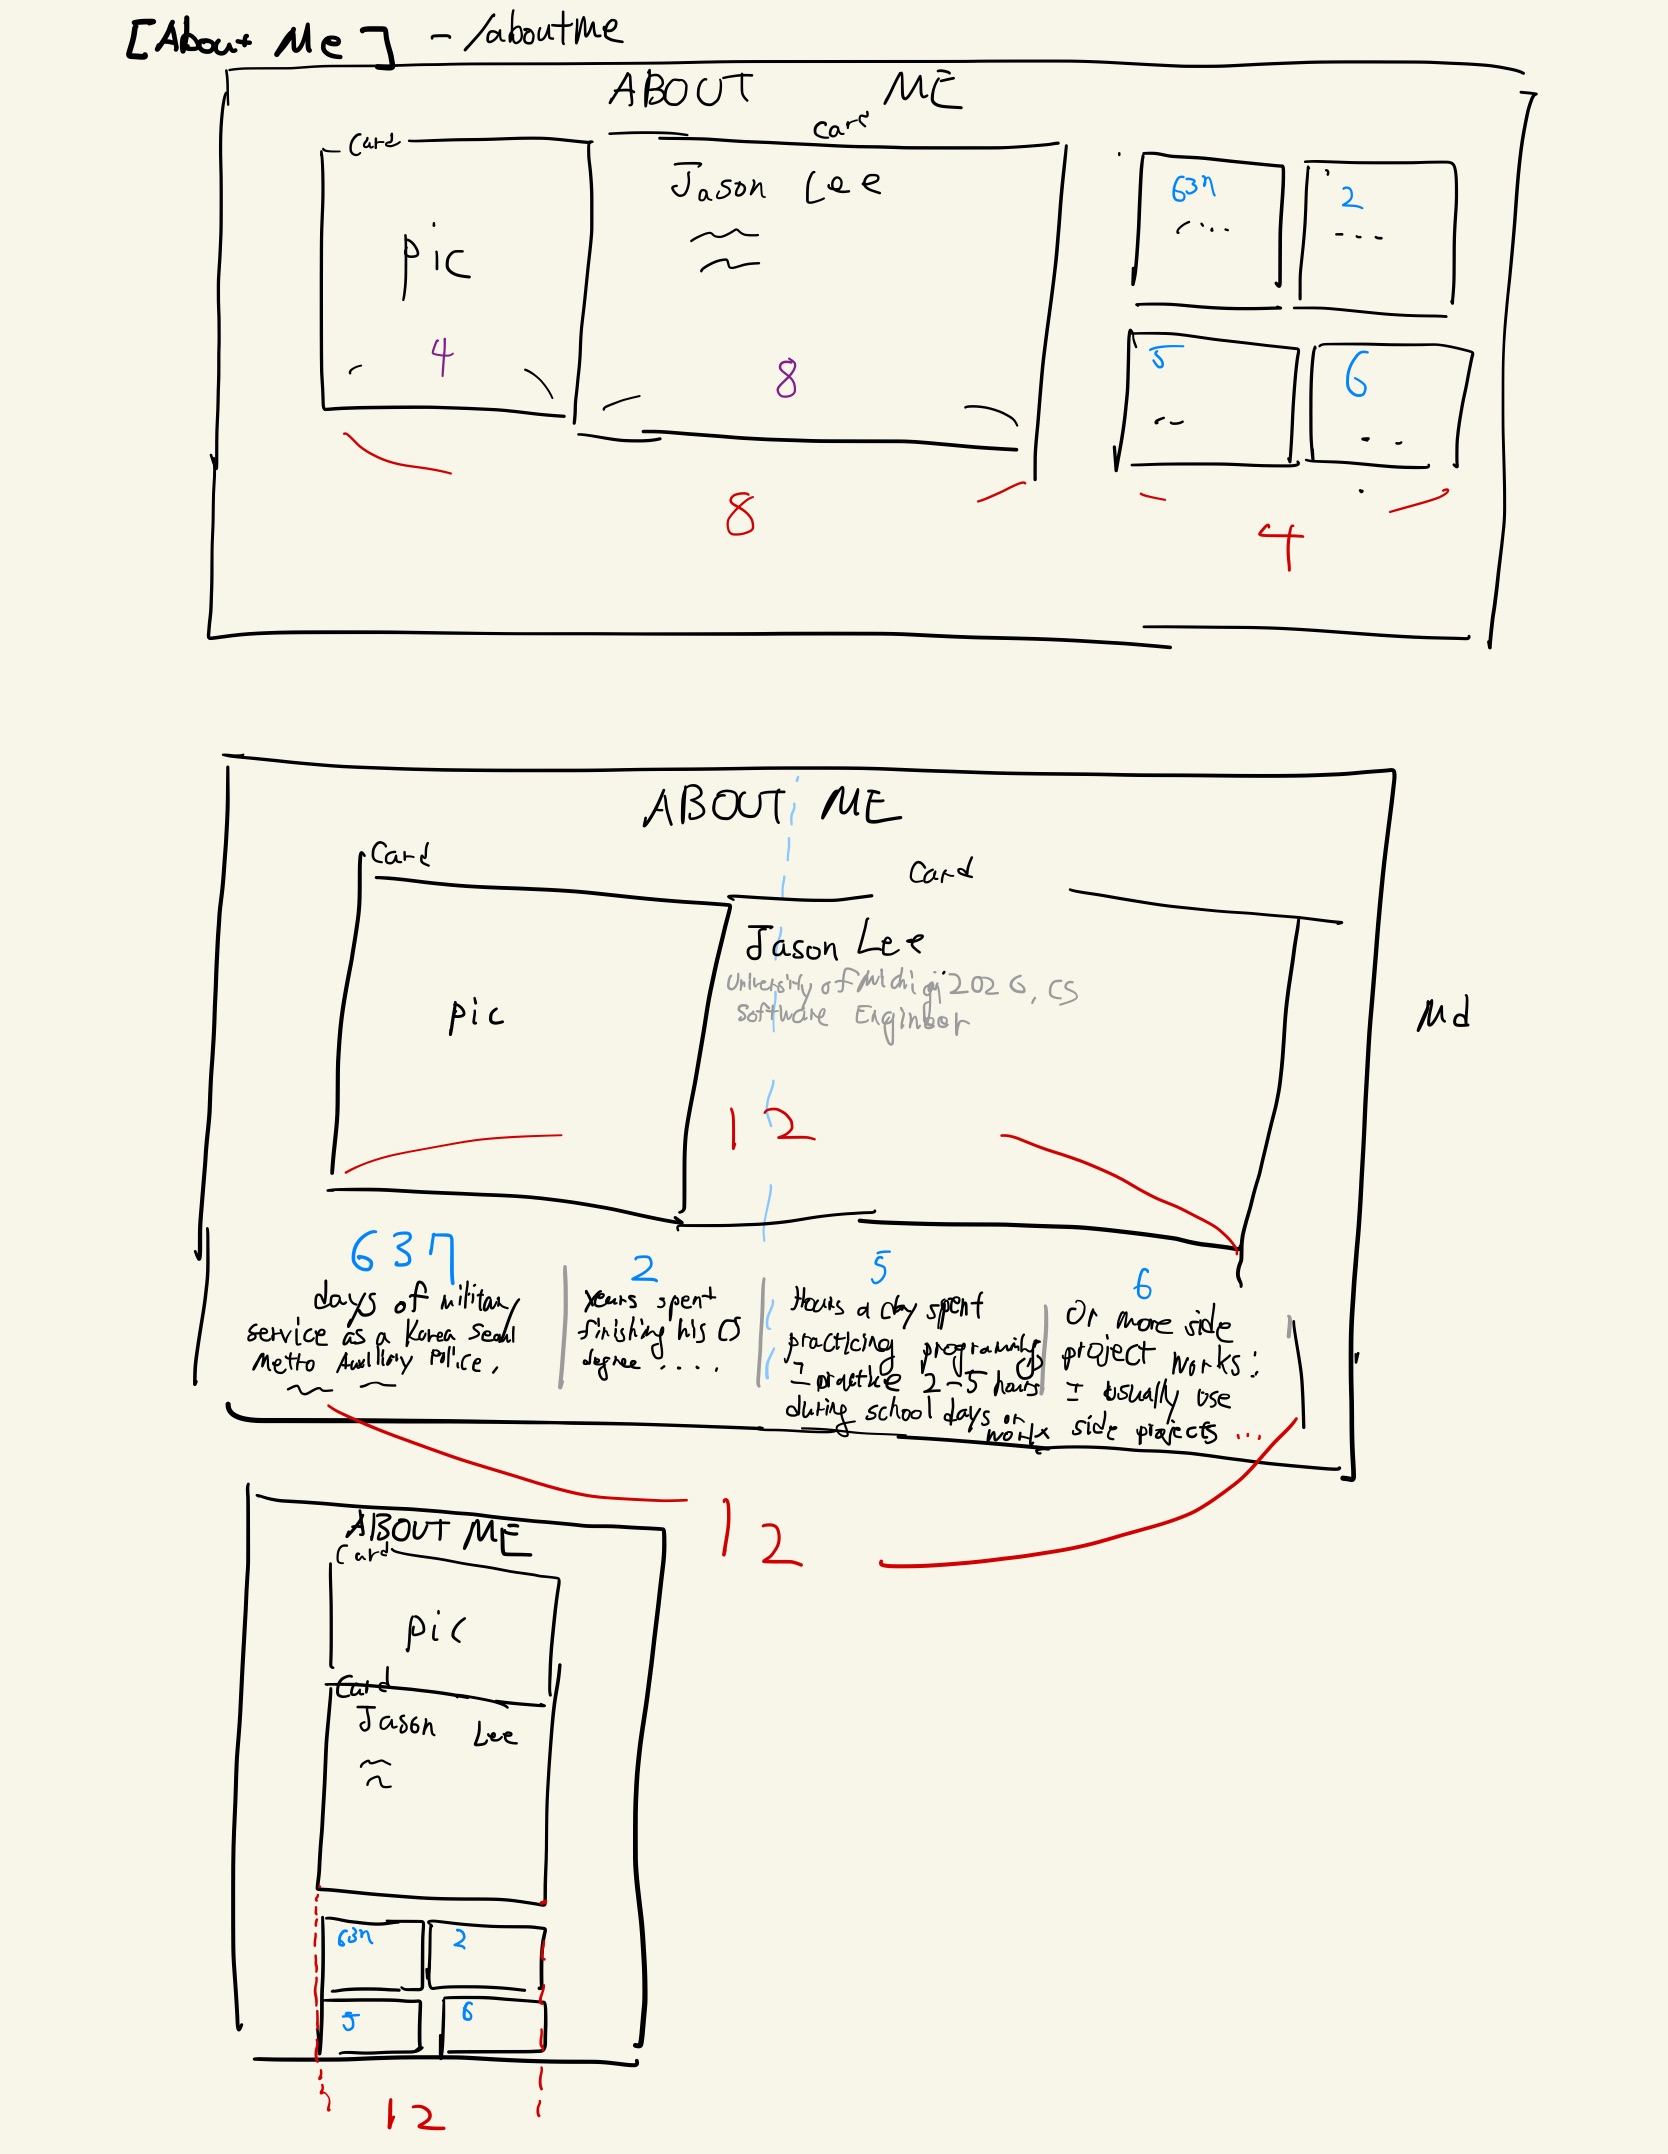 [About Me] - /aboutme
ABOUT ME
Card
Card
pic
4
Jason Lee
8
637
2
5
6
8
4
ABOUT ME
Card
Card
pic
Jason Lee
University of Michigan 2026, CS
Software Engineer
12
Md
637
days of military
service as a Korea Seoul
Metro Auxiliary Police.
2
Years spent
finishing his CS
degree ....
5
Hours a day spent
practicing programing
I practice 2-5 hours
during school days or
work
6
Or more side
project works:
I usually use
side projects ...
12
ABOUT ME
Card
pic
Card
Jason Lee
637
2
5
6
12